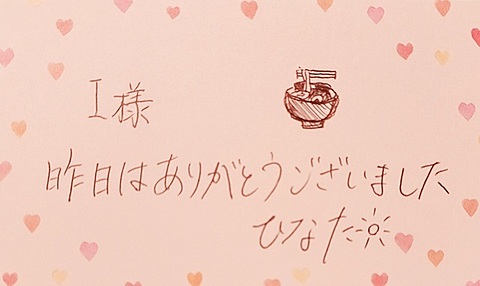 I様
昨日はありがとうございました
ひなた